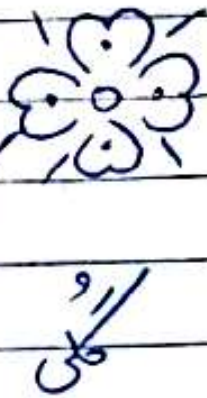 گُل